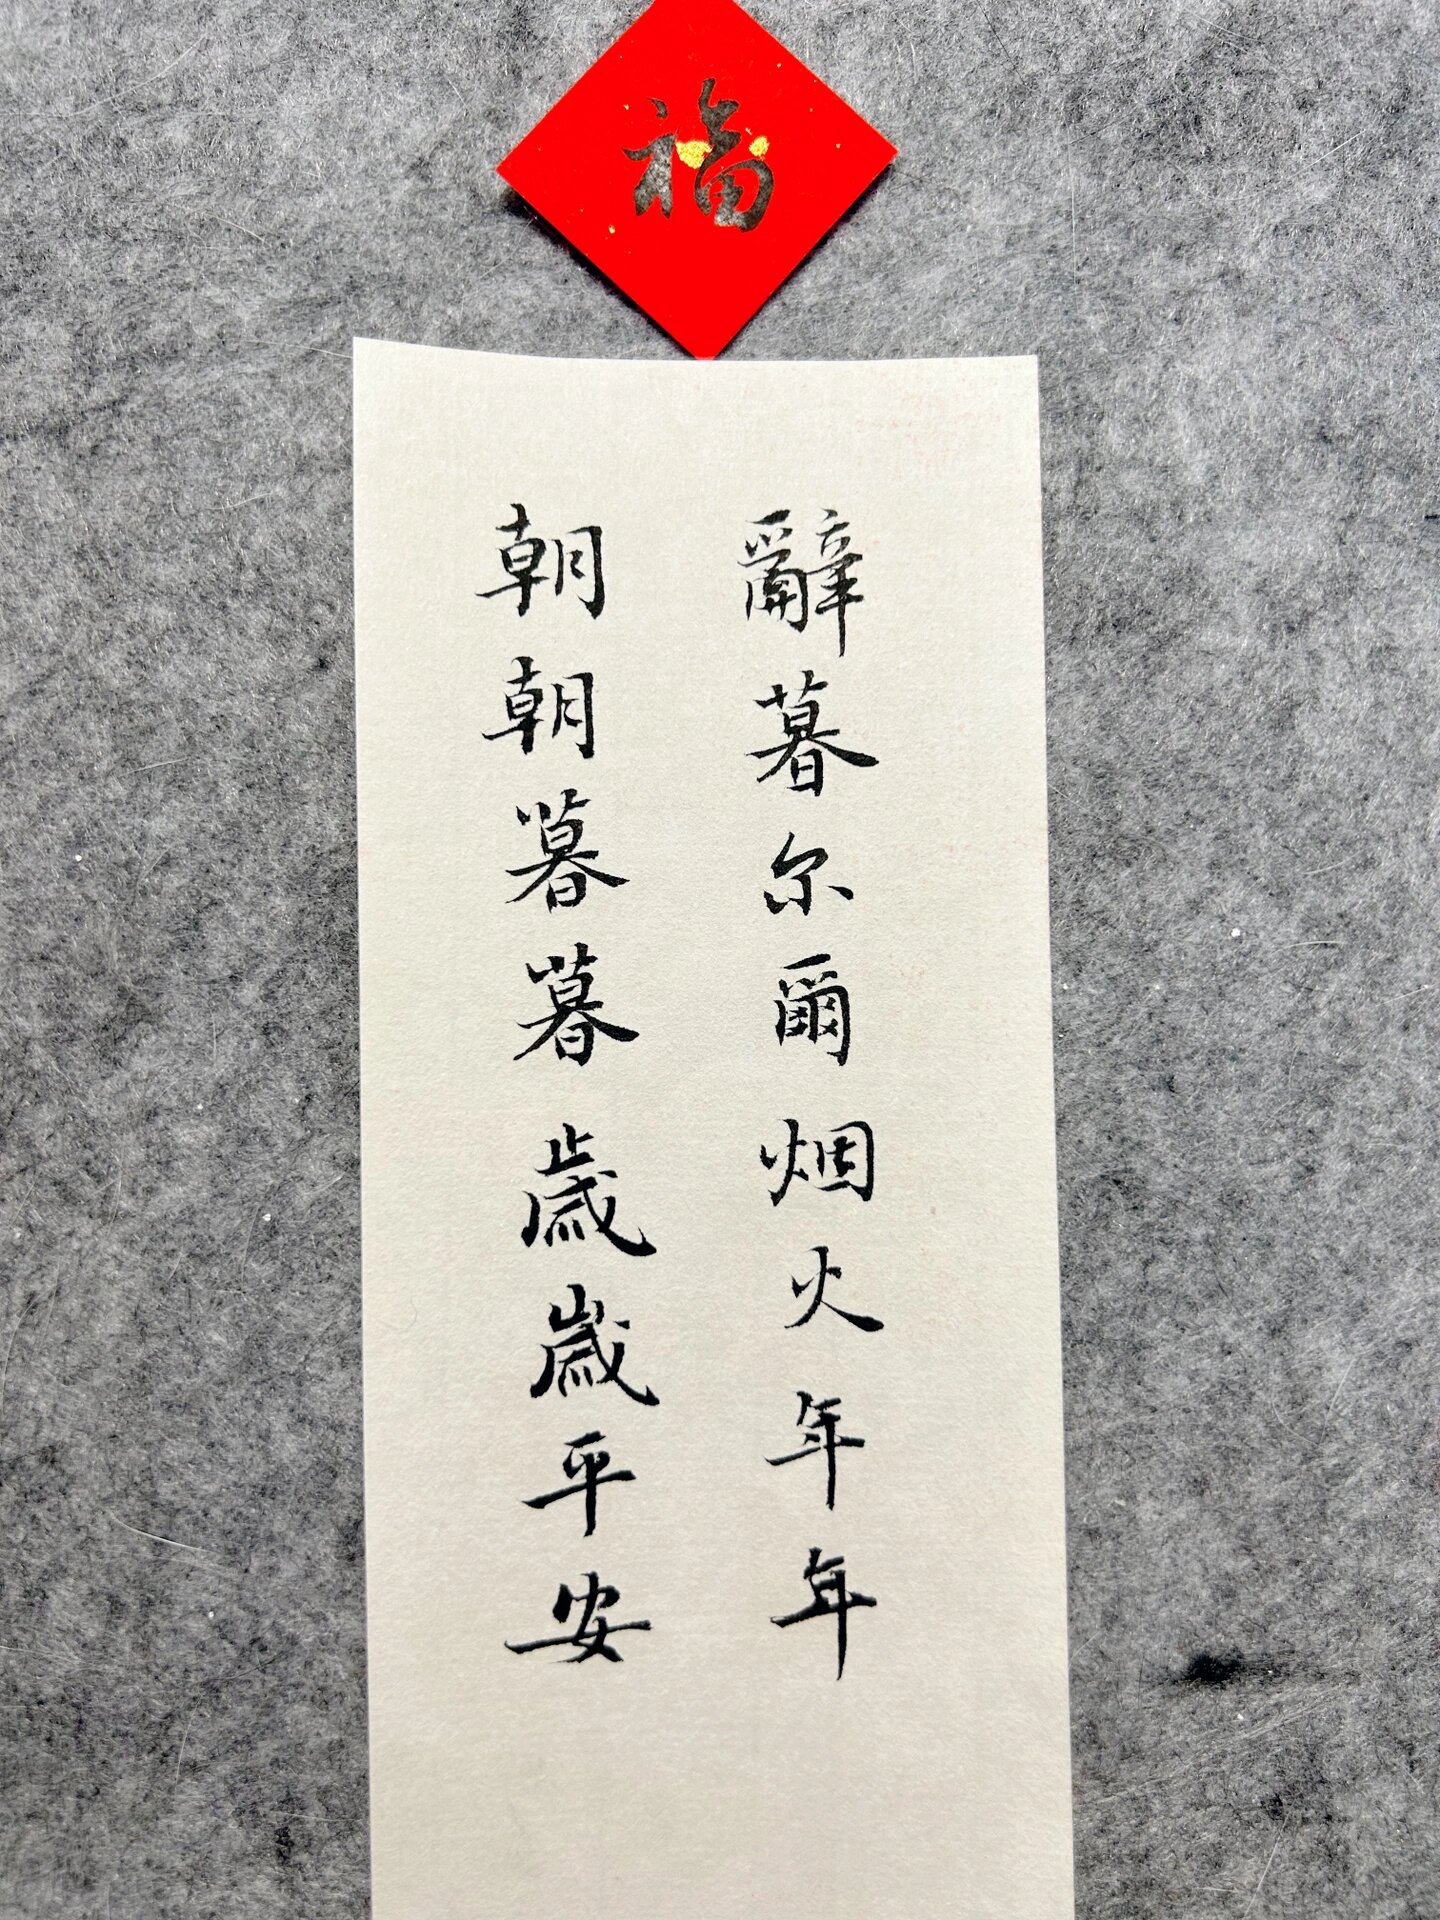 福
辭暮尔爾烟火年年
朝朝暮暮歲歲平安